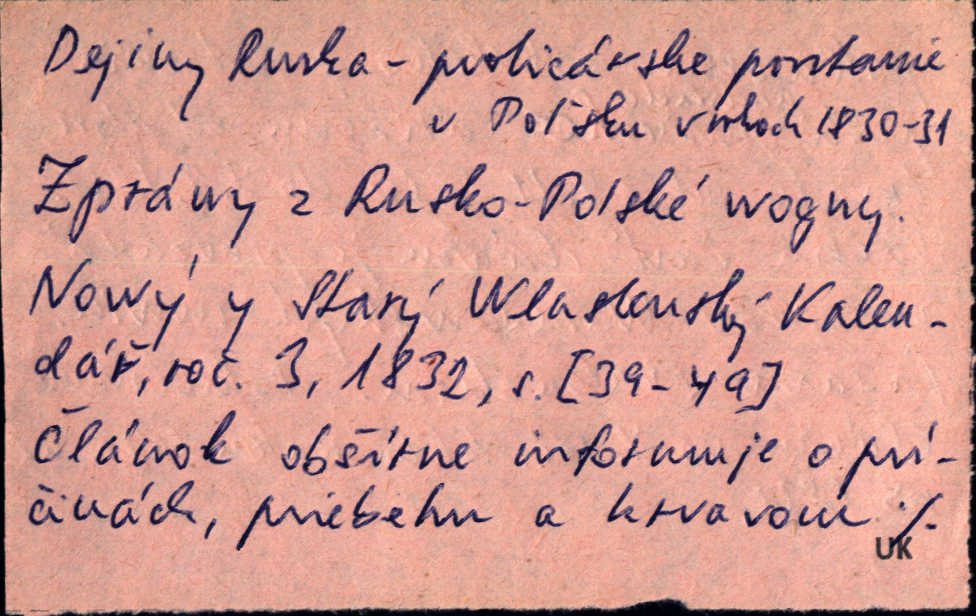 Dejiny Ruska - proticárske povstanie
v Poľsku v rokoch 1830-31
Zpráwy z Rusko-Polské wogny.
Nowý y Starý Wlastenský Kalen-
dář, roč. 3, 1832, s. [39-49]
Článok obšírne informuje o prí-
činách, priebehu a krvavom ./.
UK